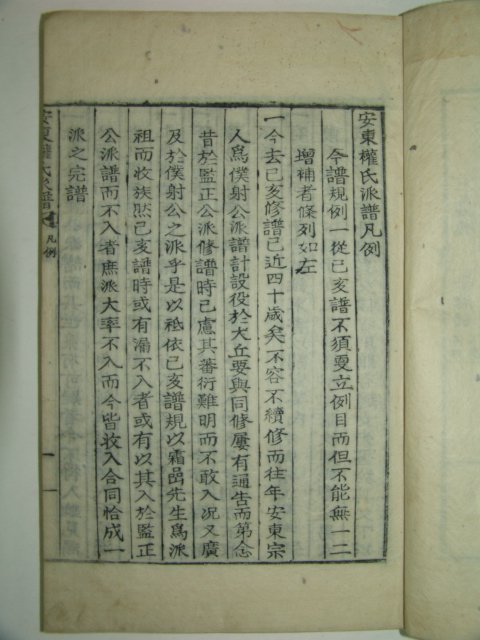 安東權氏派譜凡例
今譜規例一從己亥譜不須更立例目而但不能無一二
增補者條列如左
一今去己亥修譜已近四十歲矣不容不續修而往年安東宗
人爲僕射公派譜計設役於大丘要與同修屢有通告而第念
昔於監正公派修譜時已慮其蕃衍難明而不敢入況又廣
及於僕射公之派乎是以祗依己亥譜規以霜嵒先生爲派
祖而收族然己亥譜時或有漏不入者或有以其入於監正
公派譜而不入者庶派大率不入而今皆收入合同恰成一
派之完譜
安東權氏派譜 凡例 一